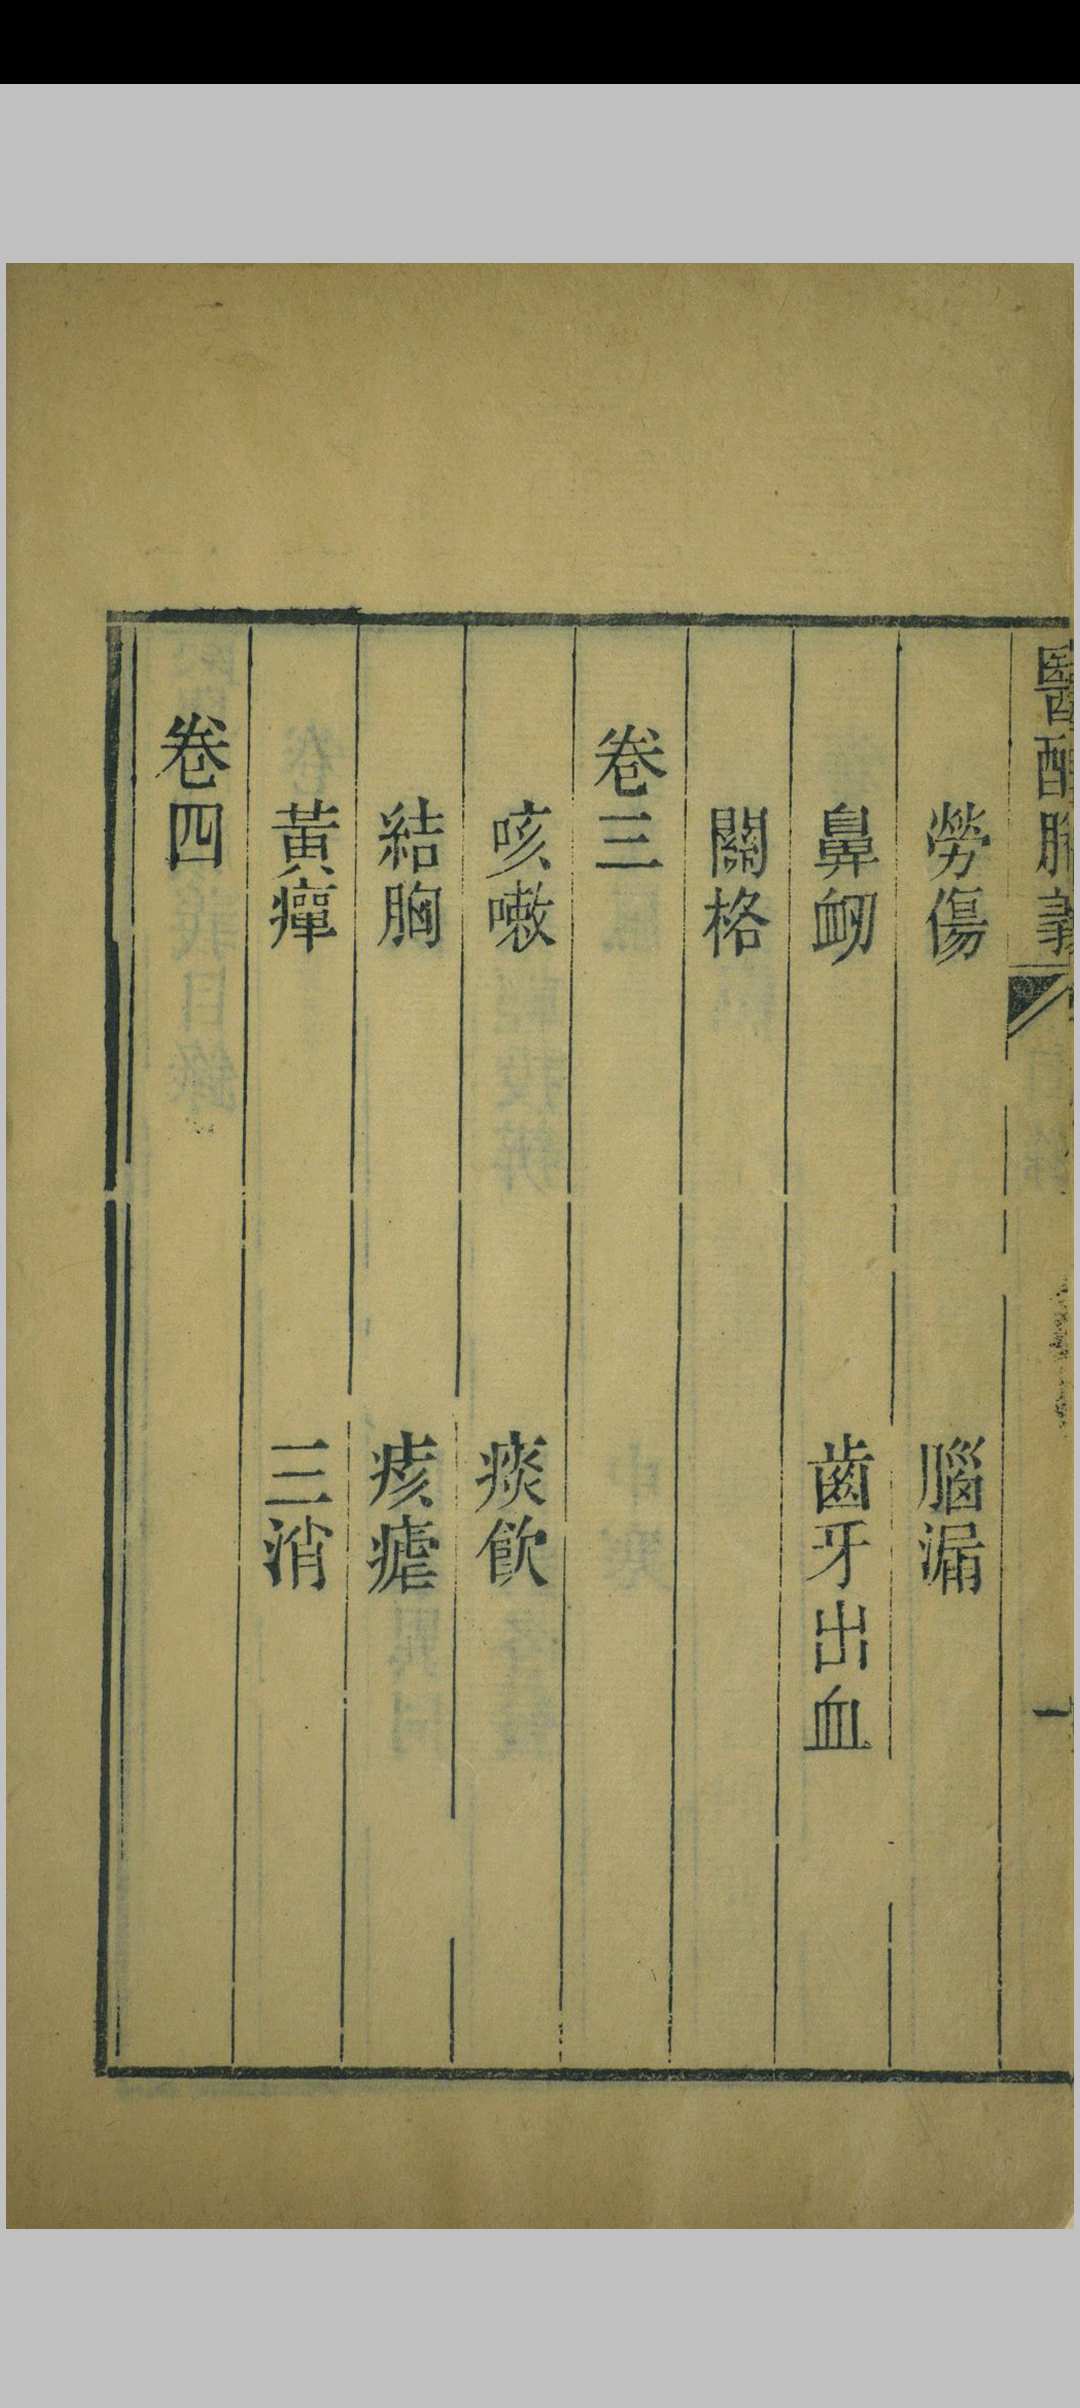 醫醇賸義
一
勞傷 腦漏
鼻衄 齒牙出血
關格
卷三
咳嗽 痰飲
結胸 痎瘧
黃癉 三消
卷四